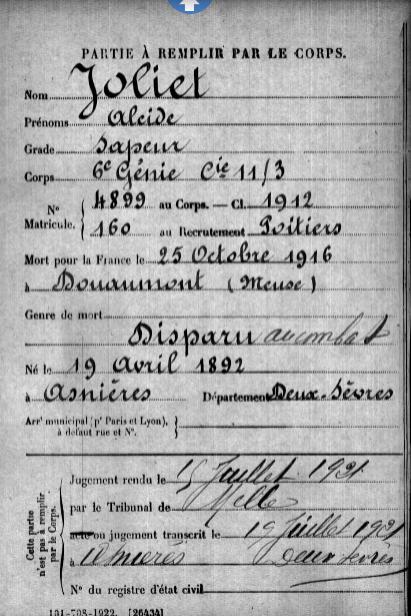 PARTIE À REMPLIR PAR LE CORPS.
Nom Joliet
Prénoms Alcide
Grade Sapeur
Corps 6e Génie Cie 11/3
No Matricule. { 4899 au Corps. — Cl. 1912
160 au Recrutement Poitiers
Mort pour la France le 25 Octobre 1916
à Douaumont (Meuse)
Genre de mort
Disparu au combat
Né le 19 Avril 1892
à Asnières Département Deux-Sèvres
Arrt municipal (pr Paris et Lyon), à défaut rue et No. }
Cette partie n'est pas à remplir par le Corps.
Jugement rendu le 15 Juillet 1921
par le Tribunal de Melle
acte ou jugement transcrit le 19 Juillet 1921
à Deux Sèvres
No du registre d'état civil